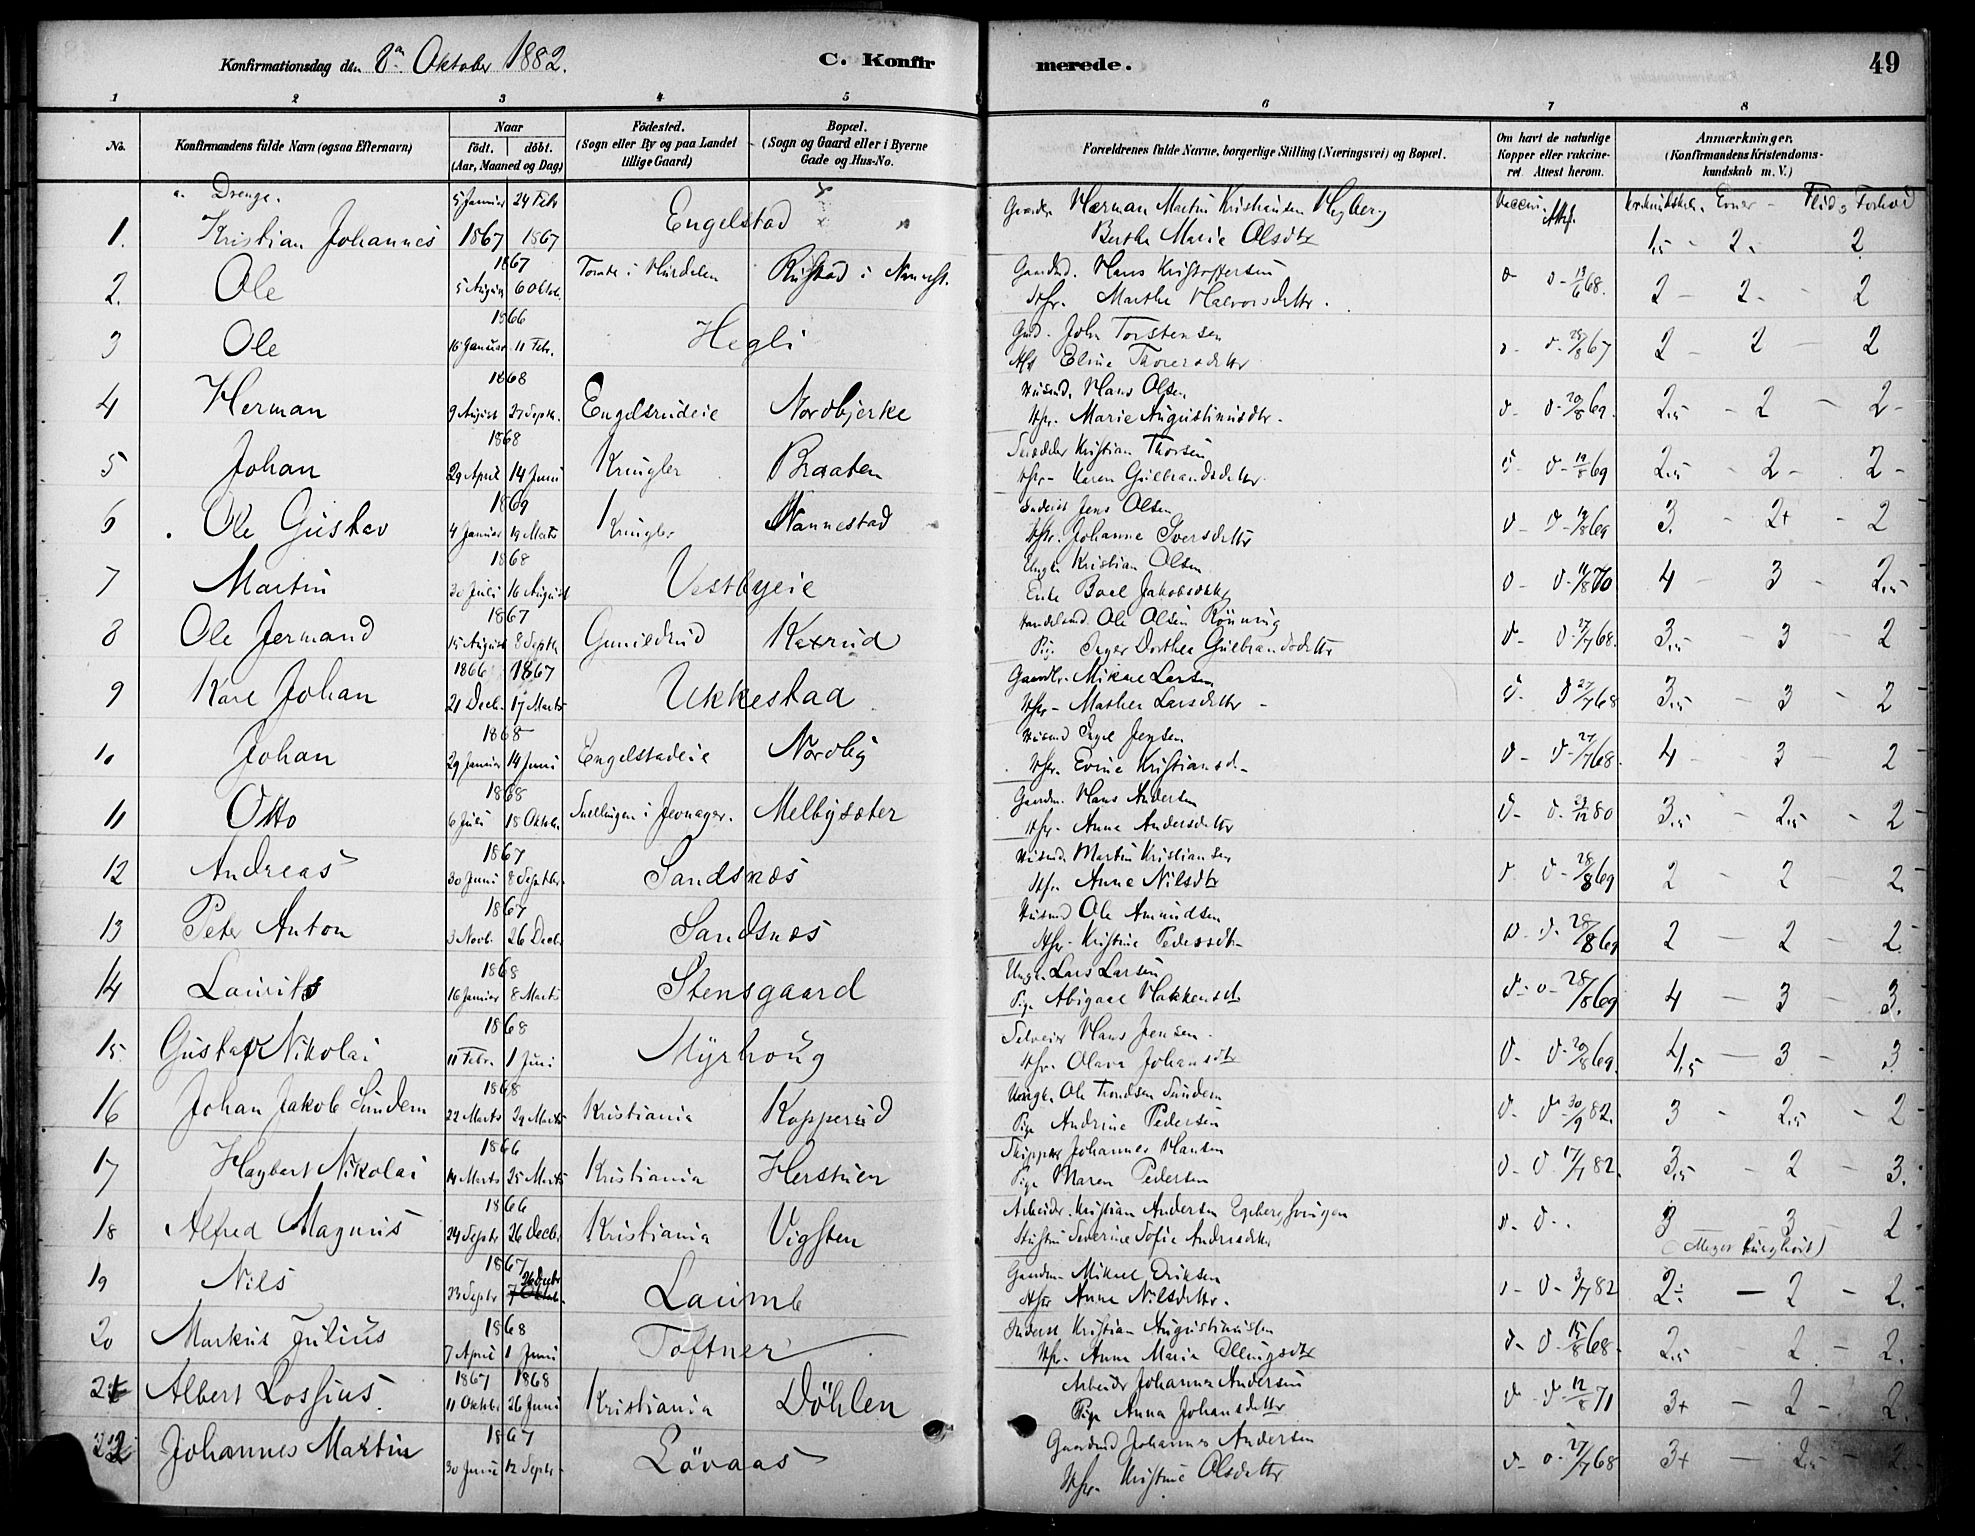 Konfirmationsdag den 8de Oktober 1882. C. Konfirmerede. 49
1 2 3 4 5 6 7 8
No. Konfirmandens fulde Navn (ogsaa Efternavn) Naar födt. döbt. (Aar, Maaned og Dag) Födested. (Sogn eller By og paa Landet tillige Gaard) Bopæl. (Sogn og Gaard eller i Byerne Gade og Hus-No. Forældrenes fulde Navne, borgerlige Stilling (Næringsvei) og Bopæl. Om havt de naturlige Kopper eller vakcineret. Attest herom. Anmærkninger. (Konfirmandens Kristendomskundskab m. V.)
a. Drenge.
1. Kristian Johannes 5 Januar 1867 24 Febr 1867 Engelstad Herman Martin Kristiansen
Berthe Marie Olsdtr 1,5 - 2 - 2
2. Ole 1867 5 August 6 Oktob. Hurdalen Rustad i Nannest. Gaardmd. Hans Kristoffersen
Hstr. Marthe Halvorsdattr. 13/6 68. 2 - 2 - 2
3 Ole 1866 16 Januar 11 Febr. Hegli Gmd. John Torstensen
Eline Thoresdattr 28/8 67 2 - 2 - 2
4 Herman 1868 9 August 27 Septb. Engelsrudeie Nordbjerke Husmd. Hans Olsen
Hstr. Marie Augustinusdtr. 20/8 69. 2,5 - 2 - 2
5 Johan 1868 29 April 14 Juni Krugler Braaten Kristian Thorsen
Hstr. Karen Gulbrandsdattr 19/8 69 2,5 - 2 - 2
6 Ole Gustav 1869 4 Januar 19 Marts Krugler Nannestad Jens Olsen
Hstr. Johanne Iversdattr 19/8 69 3. - 2+ - 2
7 Martin 1868 30 Juli 16 August Vestbyeie Ungk. Kristian Olsen
Enke Boel Jakobsdattr 11/8 70 4 - 3 - 2,5
8 Ole Jermand 1867 15 August 8 Septb. Gunildrud Kexrud Ole Olsen Rönning
Pige Inger Dorthea Gulbrandsdattr 27/7 68. 3,5 - 3 2
9 Karl Johan 1866 21 Decb. 1867 17 Marts Ukkestad Gaardbr. Mikael Larsen
Hstr. Mathea Larsdattr 27/7 68 3,5 - 3 - 2
10 Johan 1868 29 Januar 14 Juni Engelstadeie Nordby Husmd Jensen
Hstr. Evine Kristiansd. 27/7 68. 4 - 3 - 2
11 Otto 1868 6 Juli 18 Oktob. Snellingen i Jevnager. Melbysæter Gaardm. Hans Andersen
Hstr. Anna Andersdattr 23/12 80 3,5 - 2,5 - 2
12 Andreas 1867 30 Juni 8 Septbr. Sandsnæs Husmd. Martin Kristiansen
Hstr. Anne Nilsdtr 28/8 69 2 - 2 - 2.
13 Peter Anton 1867 3 Novb. 26 Decbr Sandsnæs Husmd Ole Amundsen
Hstr. Kristine Pedersdtr 28/8 69 2 - 2 - 2.
14 Laurits 1868 16 Januar 8 Marts Stensgaard Ungk. Lars Larsen
Pige Abigael Hakkensd. 28/8 69 4 - 3 - 3.
15. Gustav Nikolai 1868 11 Febr. 1 Juni Myrhoug Selveier Hans Jensen
Hstr. Olava Johansdtr 20/8 69. 4,5 - 3 - 3.
16 Johan Jakob Sundem 1868 22 Marts 29 Marts Kristiania Kopperud Ungk. Ole Trondsen Sundem
Pige Andrine Pedersen 30/9 82. 3 - 2,5 - 2
17 Hagbart Nikolai 1866 14 Marts 25 Marts Kristiania Herstuen Skipper Johannes Hansen
Pige Maren Pedersen 17/7 82. 3,5 - 2 - 3.
18 Alfred Magnus 1866 24 Septb 26 Decbr Kristiania Vigsten Arbeidr. Kristian Andersen
Hustru Severine Sofie Andersdattr 3 - 3 - 2
(Meget tunghört)
19 Nils 1867 23 Septbr 26 Decbr 7 Oktob. Laumb Gaardm. Mikael Eriksen
Hstr Anne Nilsdattr. 3/7 82 2÷ - 2 - 2.
20 Markus Julius 1868 7 April 1 Juni Toftner Inderst Kristian Augustinusen
Hstr. Anne Maria Ellingsdtr 15/8 68. 2,5 - 2 - 2.
21 Albert Lossius. 1867 11 Oktbr. 1868 26 Juni Kristiania Döhlen Arbeidr Johannes Andersen
Pige Anna Johansdattr 12/8 71 3+ - 2 - 2.
22 Johannes Martin 1867 30 Juni 12 Septbr Lövaas Gaardmd Johannes Andersen
Hstr. Kristine Olsdattr 27/7 68 3+ - 2,5 - 2.